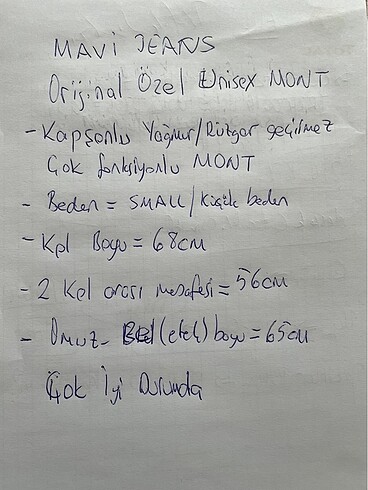 MAVİ JEANS
Orijinal Özel Unisex MONT
- Kapşonlu Yağmur/Rüzgar geçirmez
Çok fonksiyonlu MONT
- Beden = SMALL/Küçük beden
- Kol Boyu = 68cm
- 2 Kol arası mesafesi = 56cm
- Omuz - Bel (etek) boyu = 65cm
Çok İyi Durumda